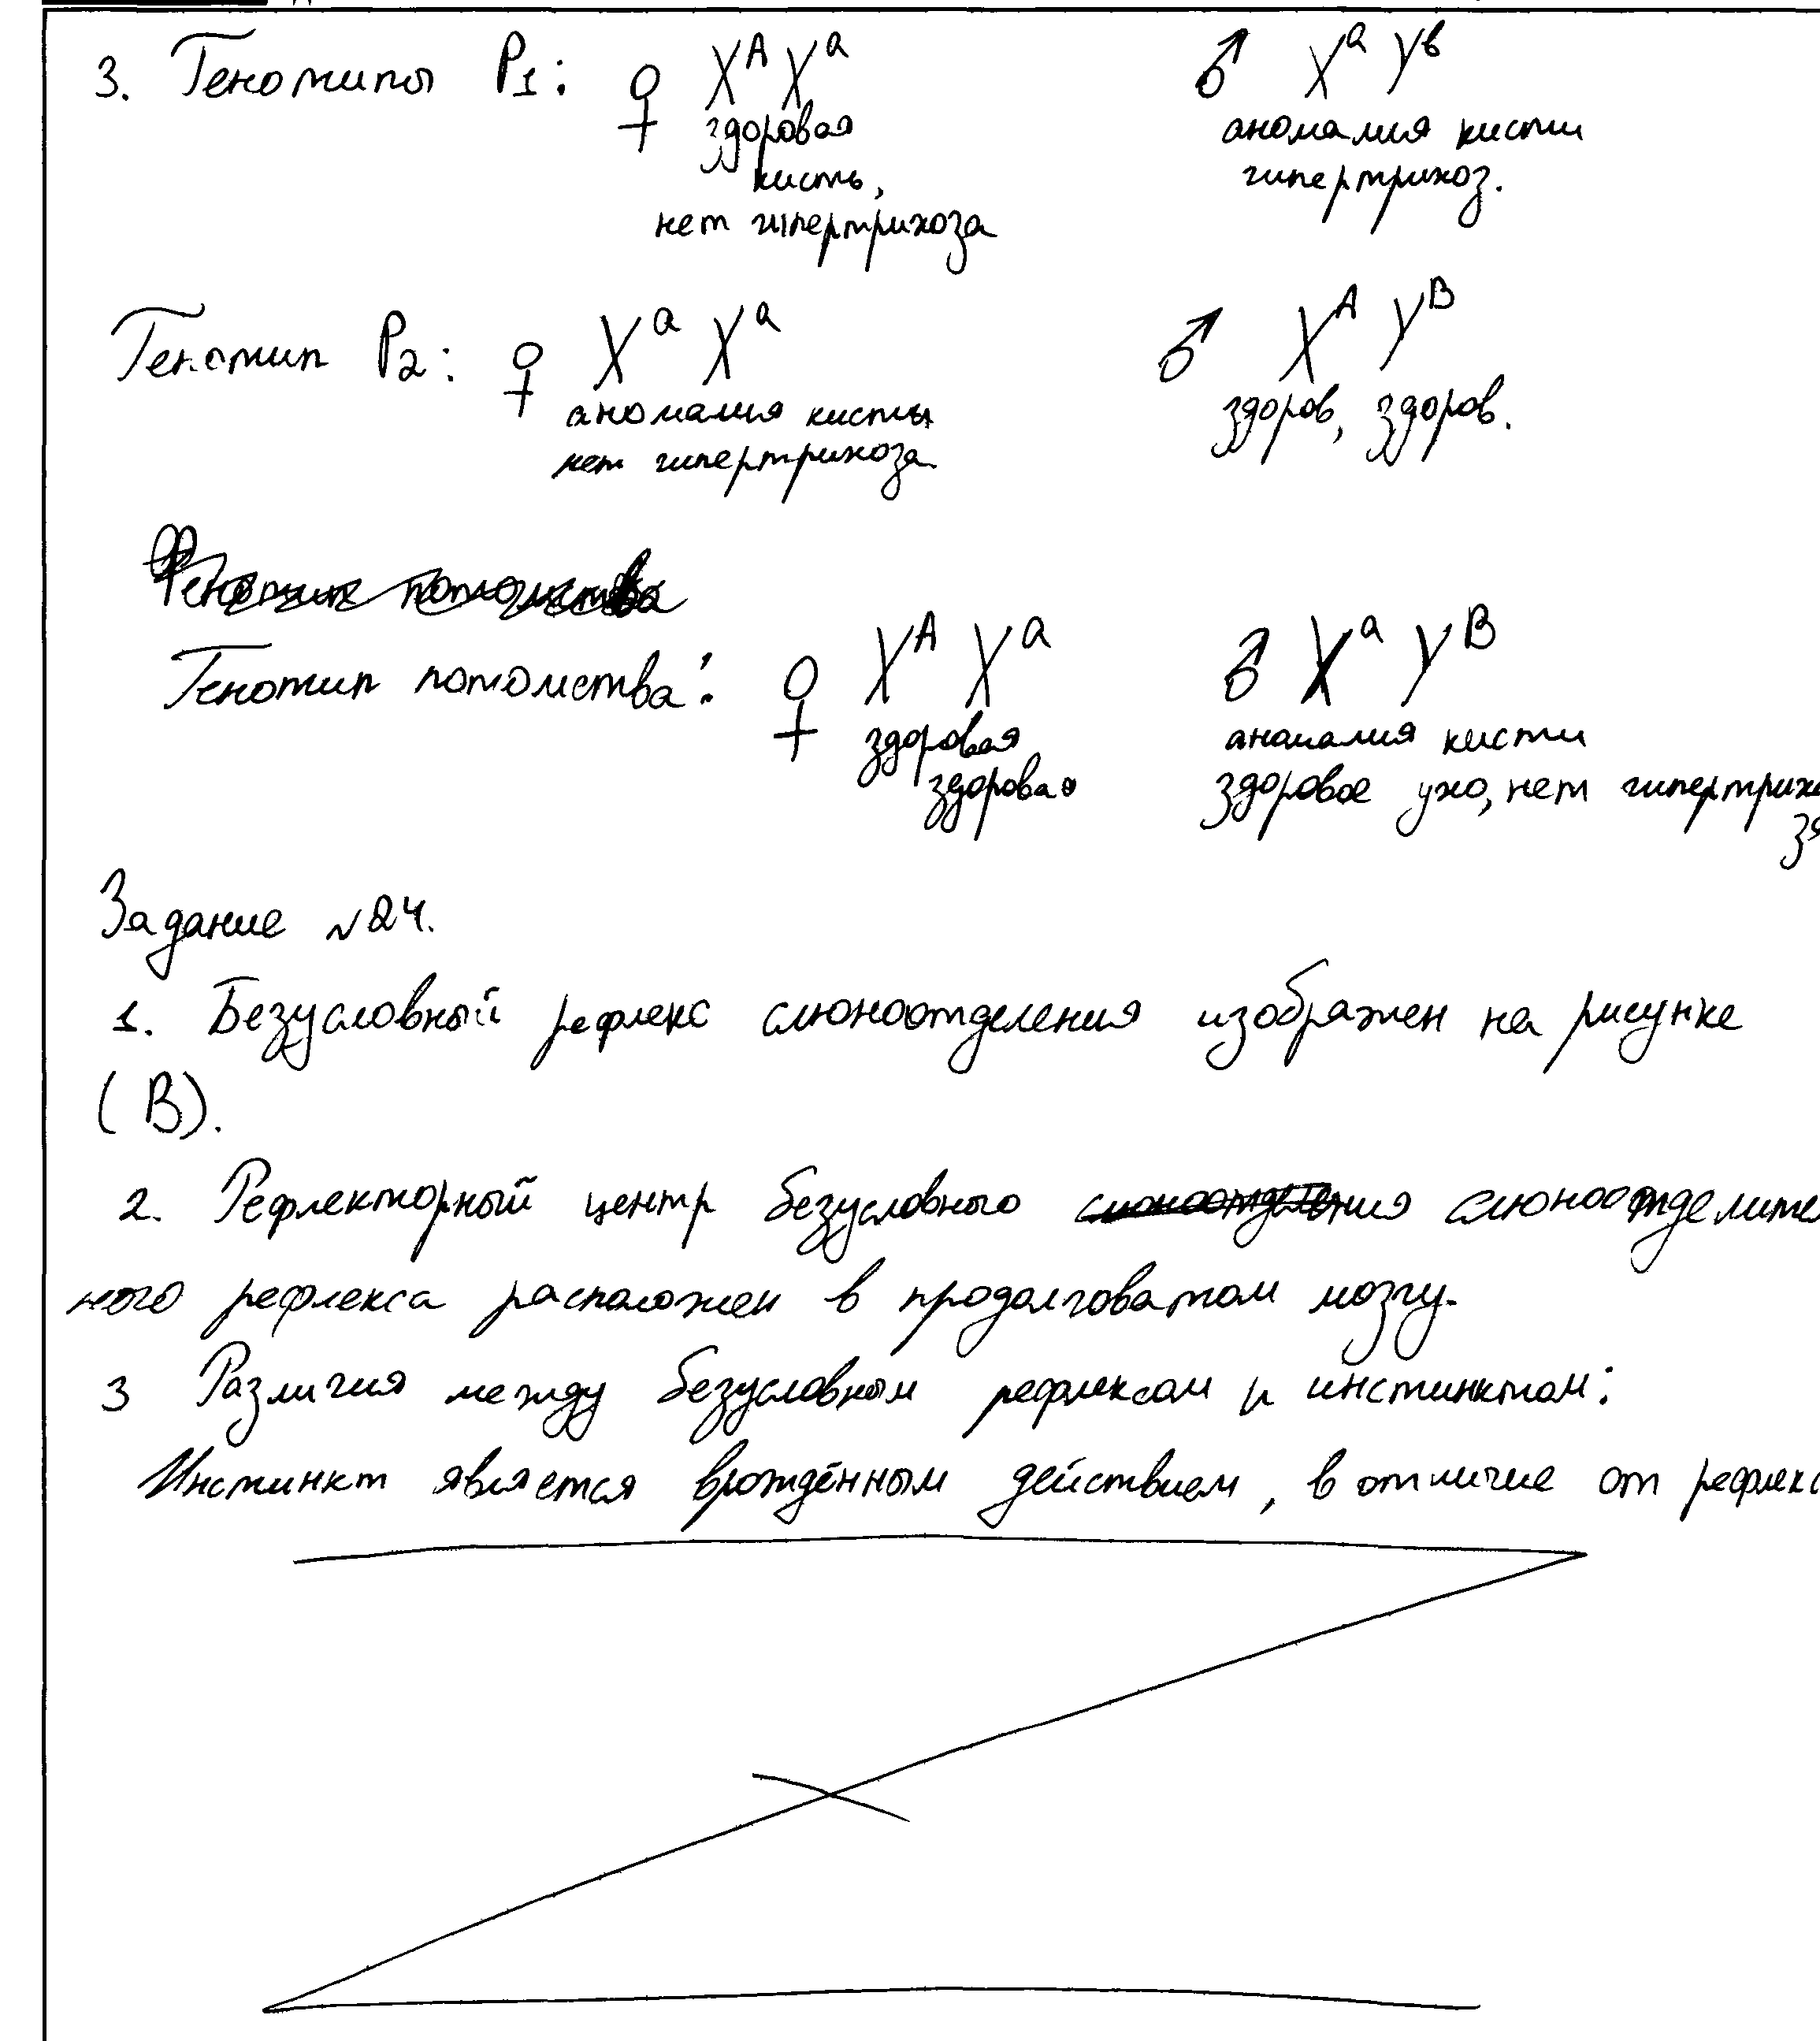 3. Генотипы P1: ♀ X^A X^a ♂ X^a Y^в
здоровая аномалия кисти
кисть, гипертрихоз.
нет гипертрихоза
Генотип P2: ♀ X^a X^a ♂ X^A Y^B
аномалия кисты здоров, здоров.
нет гипертрихоза.
Генотип потомства
Генотип потомства: ♀ X^A X^a ♂ X^a Y^B
здоровая аномалия кисти
здоровая здоровое ухо, нет гипертрихо
за
Задание №24.
1. Безусловный рефлекс слюноотделения изображен на рисунке
(В).
2. Рефлекторный центр безусловного слюноотделения слюноотделител
ного рефлекса расположен в продолговатом мозгу.
3 Различия между безусловным рефлексом и инстинктом:
Инстинкт является врождённым действием, в отличие от рефлекс